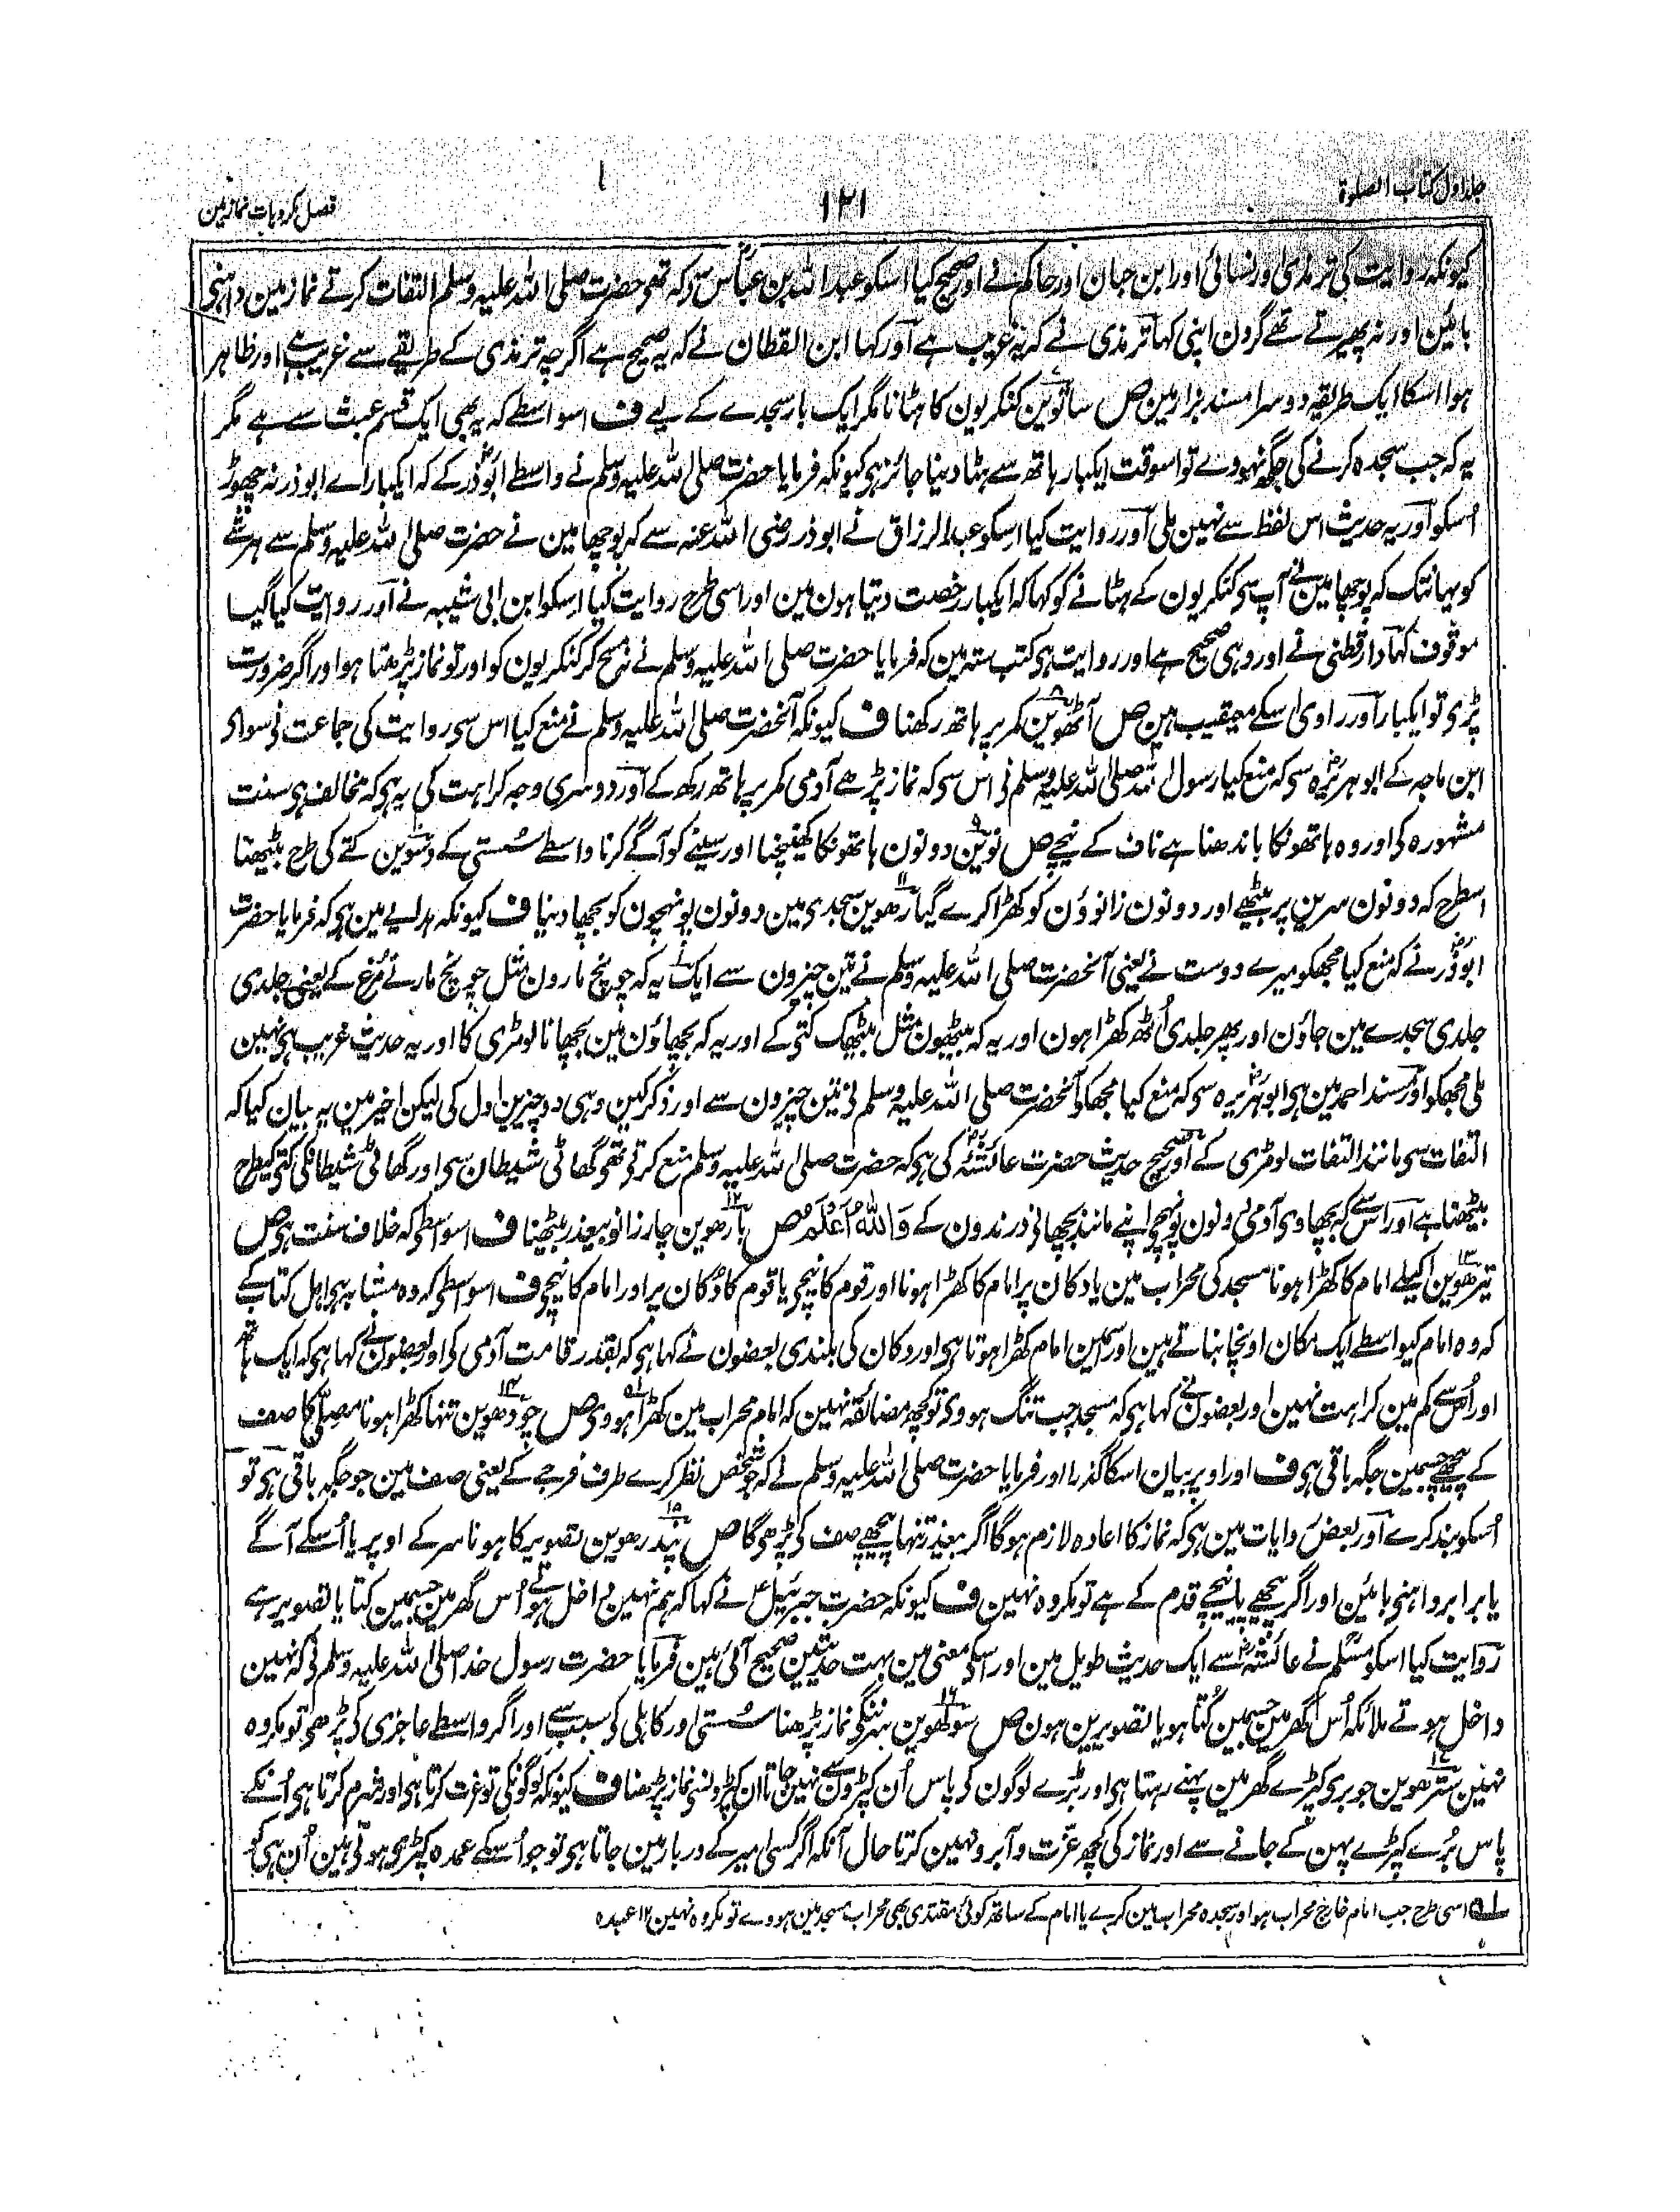 جلد اول کتاب الصلوة
۱۲۱
فصل مکروہات نماز مین
کیونکہ روایت کی ترمذی اور نسائی اور ابن حبان اور حاکم نے اور صحیح کیا اسکو عبد اللہ بن عباس سے کہ تھے حضرت صلی اللہ علیہ وسلم التفات کرتے نماز مین داہنی
بائین اور نہ پھیرتے تھے گردن اپنی کہا ترمذی نے کہ یہ غریب ہے اور کہا ابن القطان نے کہ یہ صحیح ہے اگرچہ ترمذی کے طریقے سے غریب ہے اور ظاہر
ہوا اسکا ایک طریقہ دوسرا مسند بزار مین ص ساتوین کنکریون کا ہٹانا مگر ایک بار سجدے کے لیے ف اسواسطے کہ یہ بھی ایک قسم عبث سے ہے مگر
یہ کہ جب سجدہ کرنے کی جگہ نہووے تو اسوقت ایکبار ہاتھ سے ہٹا دینا جائز ہی کیونکہ فرمایا حضرت صلی اللہ علیہ وسلم نے واسطے ابوذر کے کہ ایکبار اے ابوذر نہ چھوڑ
اسکو اور یہ حدیث اس لفظ سے نہین ملی اور روایت کیا اسکو عبد الرزاق نے ابوذر رضی اللہ عنہ سے کہ پوچھا مین نے حضرت صلی اللہ علیہ وسلم سے ہر شے
کو یہانتک کہ پوچھا مین نے آپ سی کنکریون کے ہٹانے کو کہا کہ ایکبار رخصت دیتا ہون مین اور اسی طرح روایت کیا اسکو ابن ابی شیبہ نے اور روایت کیا گیا
موقوف کہا دارقطنی نے اور وہی صحیح ہے اور روایت ہی کتب ستہ مین کہ فرمایا حضرت صلی اللہ علیہ وسلم نے نہ مسح کر کنکریون کو اور تو نماز پڑھتا ہو اور اگر ضرورت
پڑی تو ایکبار اور راوی اسکے معیقیب ہین ص آٹھوین کمر پر ہاتھ رکھنا ف کیونکہ آنحضرت صلی اللہ علیہ وسلم نے منع کیا اس سی روایت کی جماعت نی سوای
ابن ماجہ کے ابوہریرہ سی کہ منع کیا رسول اللہ صلی اللہ علیہ وسلم نی اس سی کہ نماز پڑھے آدمی کمر پر ہاتھ رکھ کے اور دوسری وجہ کراہت کی یہ ہی کہ مخالف ہی سنت
مشہورہ کی اور وہ ہاتھونکا باندھنا ہے ناف کے نیچے ص نوین دونون ہاتھونکا کھینچنا اور سینے کو آگے کرنا واسطے سستی کے دسوین کتے کی طرح بیٹھنا
اسطرح کہ دونون سرین پر بیٹھے اور دونون زانوؤن کو کھڑا کرے گیارھوین سجدی مین دونون پونہچون کو بچھا دینا ف کیونکہ ہدایے مین ہی کہ فرمایا حضرت
ابوذر نے کہ منع کیا مجھکو میرے دوست نے یعنی آنحضرت صلی اللہ علیہ وسلم نے تین چیزون سے ایک یہ کہ چونچ مارون مثل چونچ مارنے مرغ کے یعنی جلدی
جلدی سجدے مین جاؤن اور پھر جلدی اُٹھ کھڑا ہون اور یہ کہ بیٹھون مثل بیٹھک کتی کے اور یہ کہ بچھاؤن مین بچھانا لومڑی کا اور یہ حدیث غریب ہی نہین
ملی مجھکو اور مسند احمد مین ہی ابوہریرہ سی کہ منع کیا مجھکو آنحضرت صلی اللہ علیہ وسلم نی تین چیزون سے اور ذکر کین وہی دو چیزین اول کی لیکن اخیر مین یہ بیان کیا کہ
التفات سی مانند التفات لومڑی کے اور صحیح حدیث حضرت عائشہ کی ہی کہ حضرت صلی اللہ علیہ وسلم منع کرتے تھے گھاٹی شیطان سی اور گھاٹی شیطانکی کتی کیطرح
بیٹھنا ہے اور اس سے کہ بچھاوی آدمی دونون پونہچے اپنے مانند بچھانی درندون کے وَاللّٰهُ اَعْلَمُ ص بارھوین چار زانو بیعذر بیٹھنا ف اسواسطی کہ خلاف سنت ہی ص
تیرھوین اکیلے امام کا کھڑا ہونا مسجد کی محراب مین یا دکان پر امام کا کھڑا ہونا اور قوم کا نیچی یا قوم کا دکان پر اور امام کا نیچی ف اسواسطی کہ وہ مشابہ ہی اہل کتاب کے
کہ وہ امام کیواسطے ایک مکان اونچا بناتے ہین اور اسمین امام کھڑا ہوتا ہی اور دکان کی بلندی بعضون نے کہا ہی کہ بقدر قامت آدمی کی اور بعضون نے کہا ہی کہ ایک ہاتھ
اور اُس سے کم مین کراہت نہین اور بعضون نے کہا ہی کہ مسجد جب تنگ ہووی تو کچھ مضائقہ نہین کہ امام محراب مین کھڑا ہووی ص چودھوین تنہا کھڑا ہونا مصلی کا صف
کے پیچھے جسمین جگہ باقی ہی ف اور اوپر بیان اسکا گذرا اور فرمایا حضرت صلی اللہ علیہ وسلم نے کہ جو شخص نظر کرے طرف فرجے کے یعنی صف مین جو جگہ باقی ہی تو
اسکو بند کرے اور بعض روایات مین ہی کہ نماز کا اعادہ لازم ہوگا اگر بیعذر تنہا پیچھے صف کی پڑھی گا ص پندرھوین تصویر کا ہونا سر کے اوپر یا اُسکے آگے
یا برابر داہنی بائین اور اگر پیچھے یا نیچے قدم کے ہے تو مکروہ نہین ف کیونکہ حضرت جبرئیل نے کہا کہ ہم نہین داخل ہوتے اُس گھر مین جسمین کتا یا تصویر ہے
روایت کیا اسکو مسلم نے عائشہ سے ایک حدیث طویل مین اور اسکی معنی مین بہت حدیثین صحیح آئی ہین فرمایا حضرت رسول خدا صلی اللہ علیہ وسلم نی کہ نہین
داخل ہوتے ملائکہ اُس گھر مین جسمین کتا ہو یا تصویرین ہون ص سولھوین سر ننگی نماز پڑھنا سستی اور کاہلی کی سبب سے اور اگر واسطے عاجزی کی پڑھی تو مکروہ
نہین سترھوین جو بری کپڑے گھر مین پہنے رہتا ہی اور بڑے لوگون کی پاس اُن کپڑون سے نہین جاتا ان کپڑونسی نماز پڑھنا ف کیونکہ لوگونکی تو عزت کرتا ہی اور شرم کرتا ہی اُنکے
پاس بُرے کپڑے پہن کے جانے سے اور نماز کی کچھ عزت و آبرو نہین کرتا حال آنکہ اگر کسی امیر کے دربار مین جاتا ہی تو جو اُسکے عمدہ کپڑے ہوتے ہین اُن ہی کو
لہ اسی طرح جب امام خارج محراب ہو اور سجدہ محراب مین کرے یا امام کے ساتھ کوئی مقتدی بھی محراب مسجد مین ہووے تو مکروہ نہین ۱۲ عبدہ